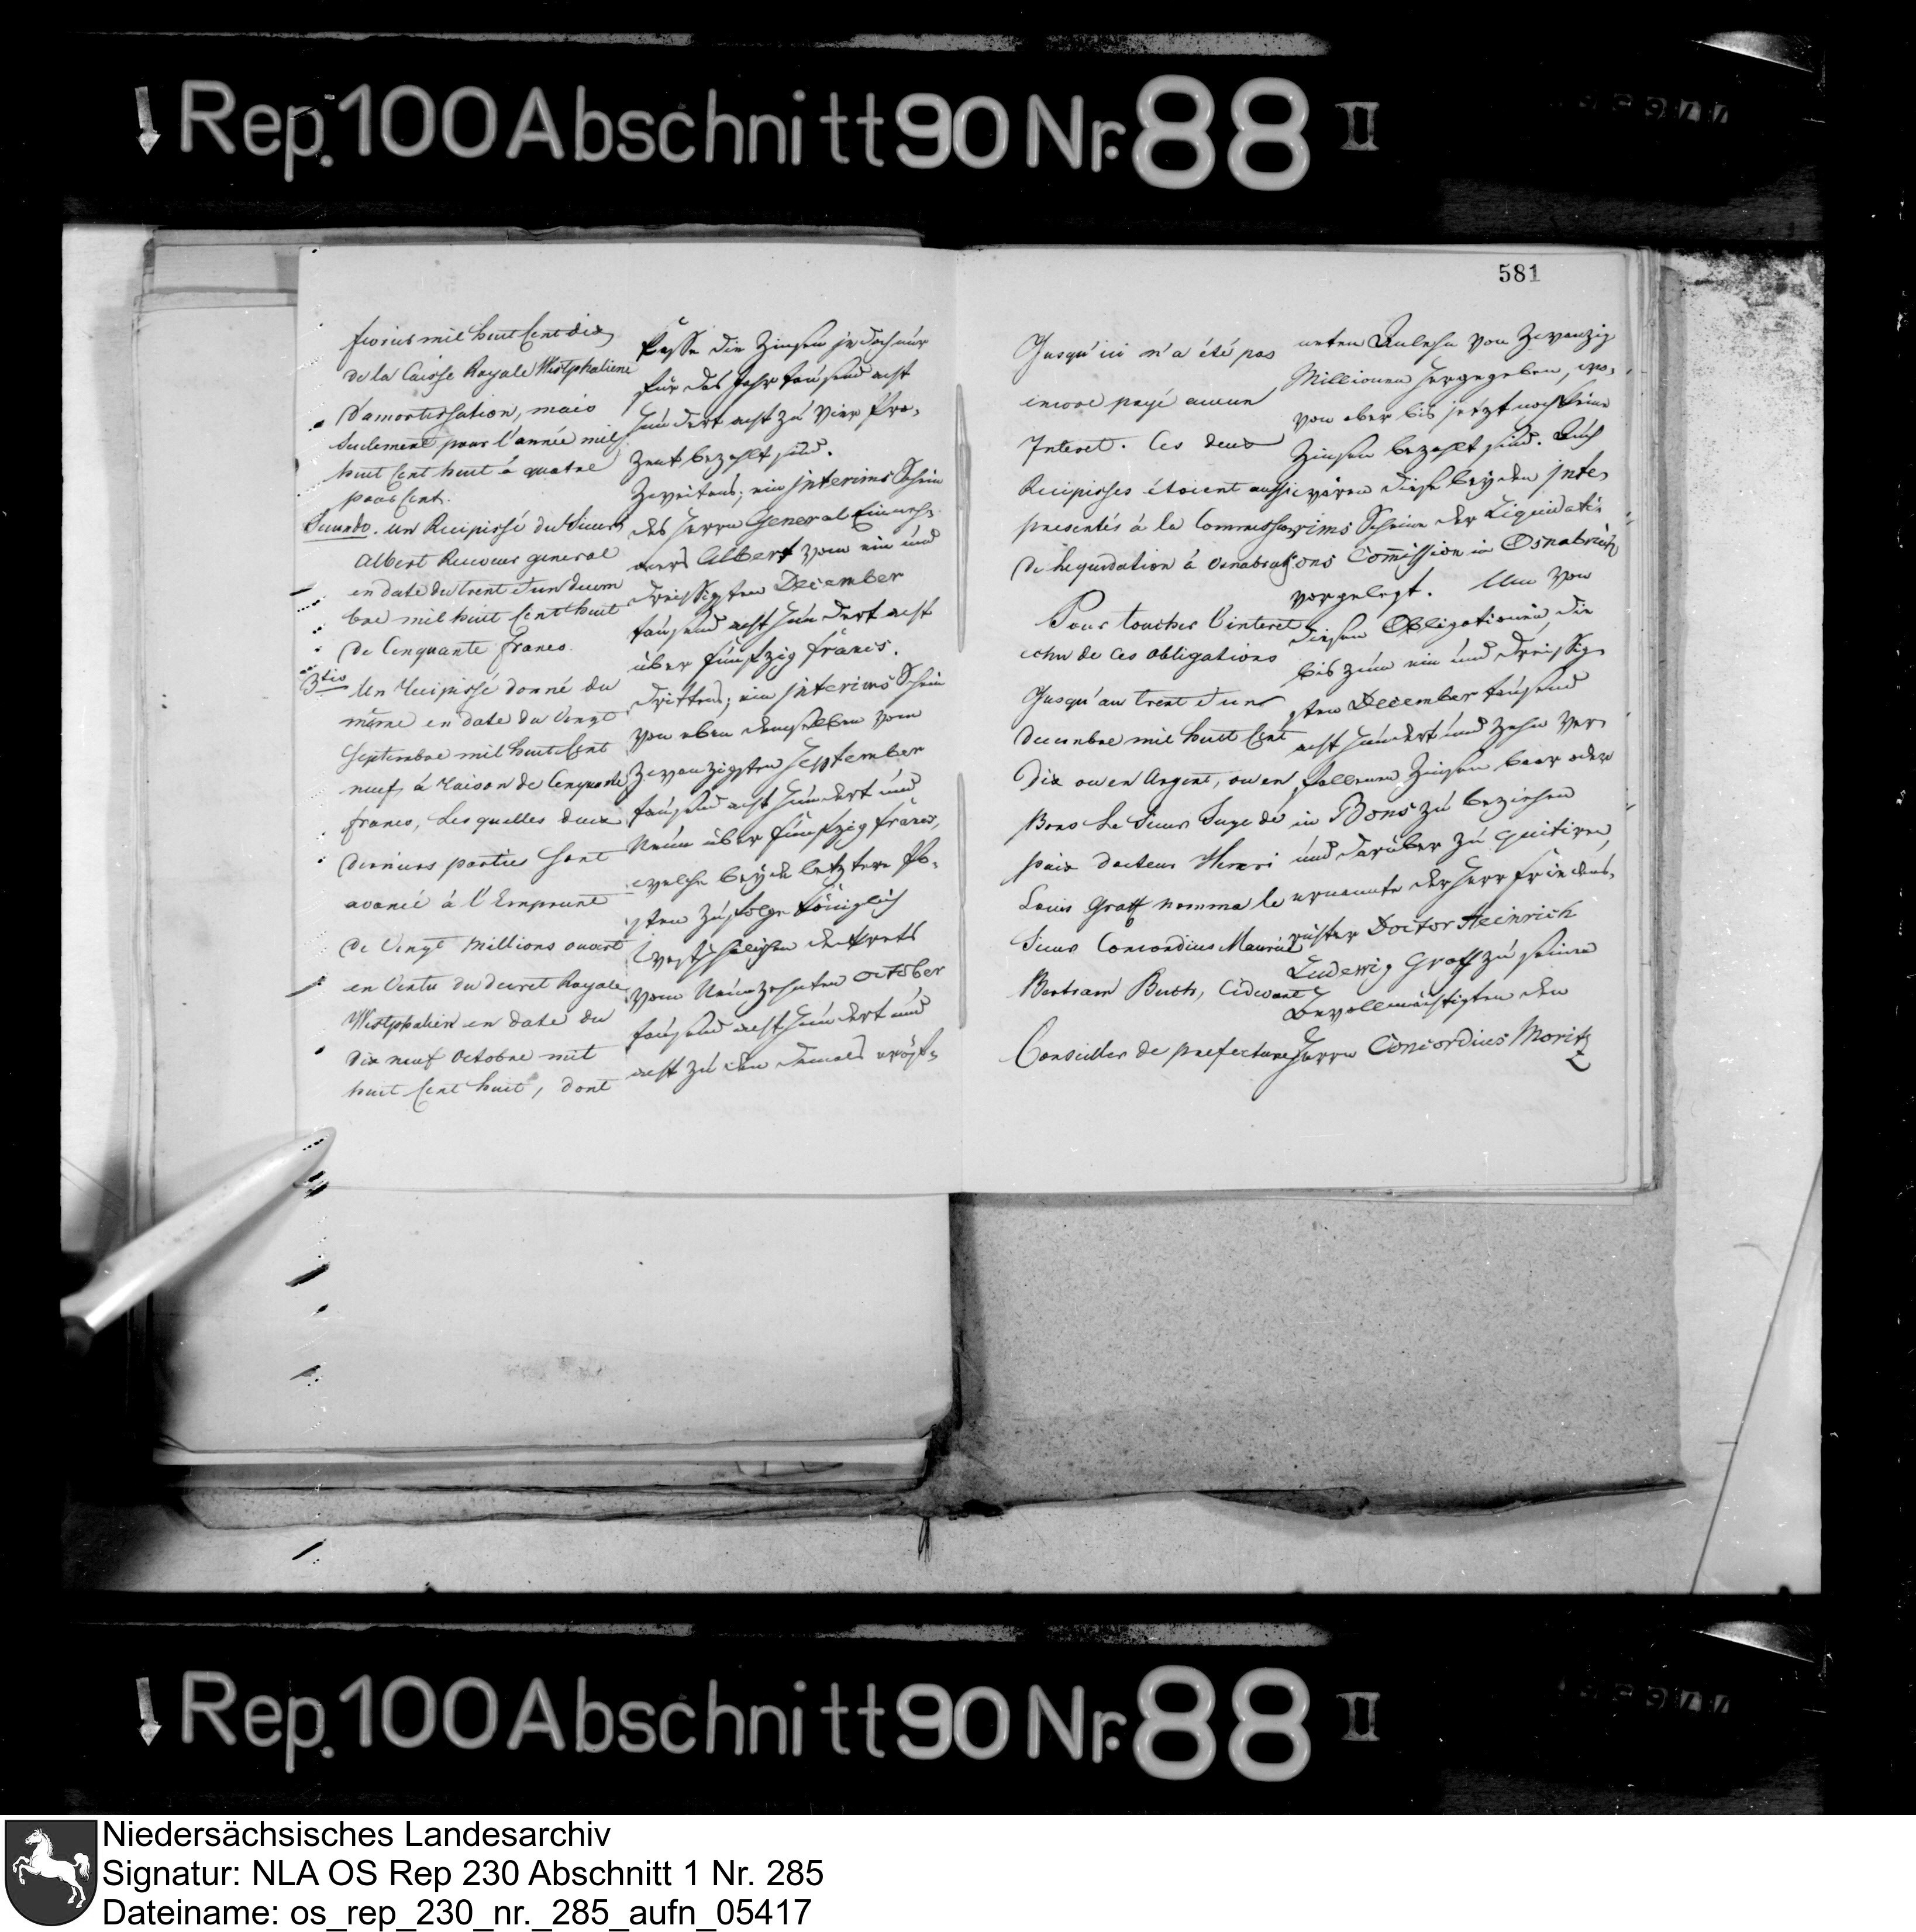 Rep. 100 Abschnitt 90 Nr. 88 II
fevrier mil huit Cent dix
de la Caisse Royale Westphaliene
d'amortissation, mais
seulement pour l'année mil
huit Cent huit à quatre
pour Cent.
Secundo. un Recipissé du Sieur
Albert Receveur general
en date du trent et un decem
bre mil huit Cent huit
de Cinquante francs.
3tio Un Recipissé donné du
même en date du Vingt
Septembre mil huit Cent
neuf, à raison de Cinquante
francs, Lesquelles deux
derniers parties sont
avancé à l'Emprunt
de Vingt Millions ouvert
en Vertu du decret Royale
Westphalien en date du
dix neuf Octobre mil
huit Cent huit, dont
Casse die Zinsen jedoch nur
für das Jahr tausend acht
hundert acht zu Vier Pro-
zent bezahlt sind.
Zweitens; ein Interims Schein
des Herrn General Einneh-
mers Albert vom ein und
dreissigsten December
tausend acht hundert acht
über fünfzig francs.
Drittens; ein Interims Schein
von eben demselben vom
Zwanzigsten September
tausend acht hundert und
Neun über fünfzig francs,
welche beyde letztere Po-
sten zufolge Königlich
Westphälischen Dekrets
vom Neunzehnten October
tausend acht hundert und
acht zu dem damals eröf-
581
Jusqu'ici n'a été pas
encore payé aucun
Interet. Ces deux
Recipisses étoient aussi
presentés à la Commission
de liquidation à Osnabruc
Pour toucher l'interet
echu de ces obligations
Jusqu'au trent et un
decembre mil huit Cent
dix ou en Argent, ou en
Bons Le Sieur Juge de
paix docteur Henri
Louis Graff nomma le
Sieur Concordius Maurice
Bertram Buch, Cidevant
Conseiller de prefecture
neten Anlehn von Zwanzig
Millionen hergegeben, wo-
von aber bis jetzt noch keine
Zinsen bezahlt sind. Auch
wären diese beyden Inte-
rims Scheine der Liquidati-
ons Commission in Osnabrück
vorgelegt. Um von
diesen Obligationen, die
bis zum ein und dreissig-
sten December tausend
acht hundert und zehn ver-
fallenen Zinsen baar oder
in Bons zu beziehen
und darüber zu quitiren,
ernannte der Herr Friedens-
richter Doctor Heinrich
Ludewig Graff zu seinem
Bevollmächtigten den
Herrn Concordius Moritz
Rep. 100 Abschnitt 90 Nr. 88 II
Niedersächsisches Landesarchiv
Signatur: NLA OS Rep 230 Abschnitt 1 Nr. 285
Dateiname: os_rep_230_nr._285_aufn_05417